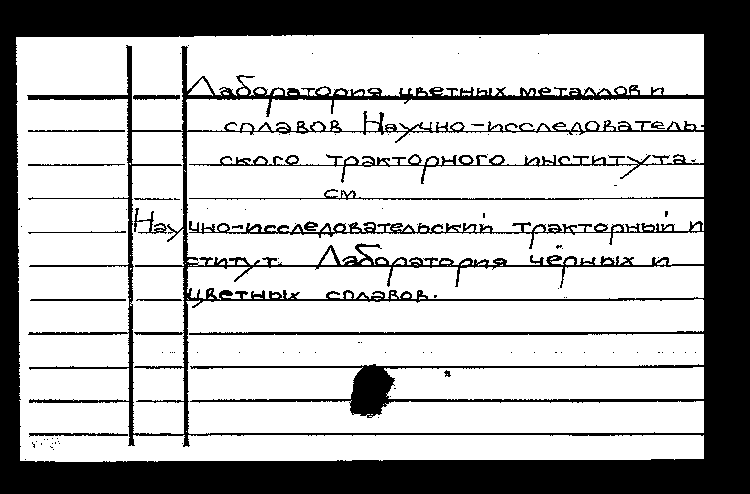 Лаборатория цветных металлов и
сплавов Научно-исследователь-
ского тракторного института.
см.
Научно-исследовательский тракторный ин
ститут. Лаборатория чёрных и
цветных сплавов.